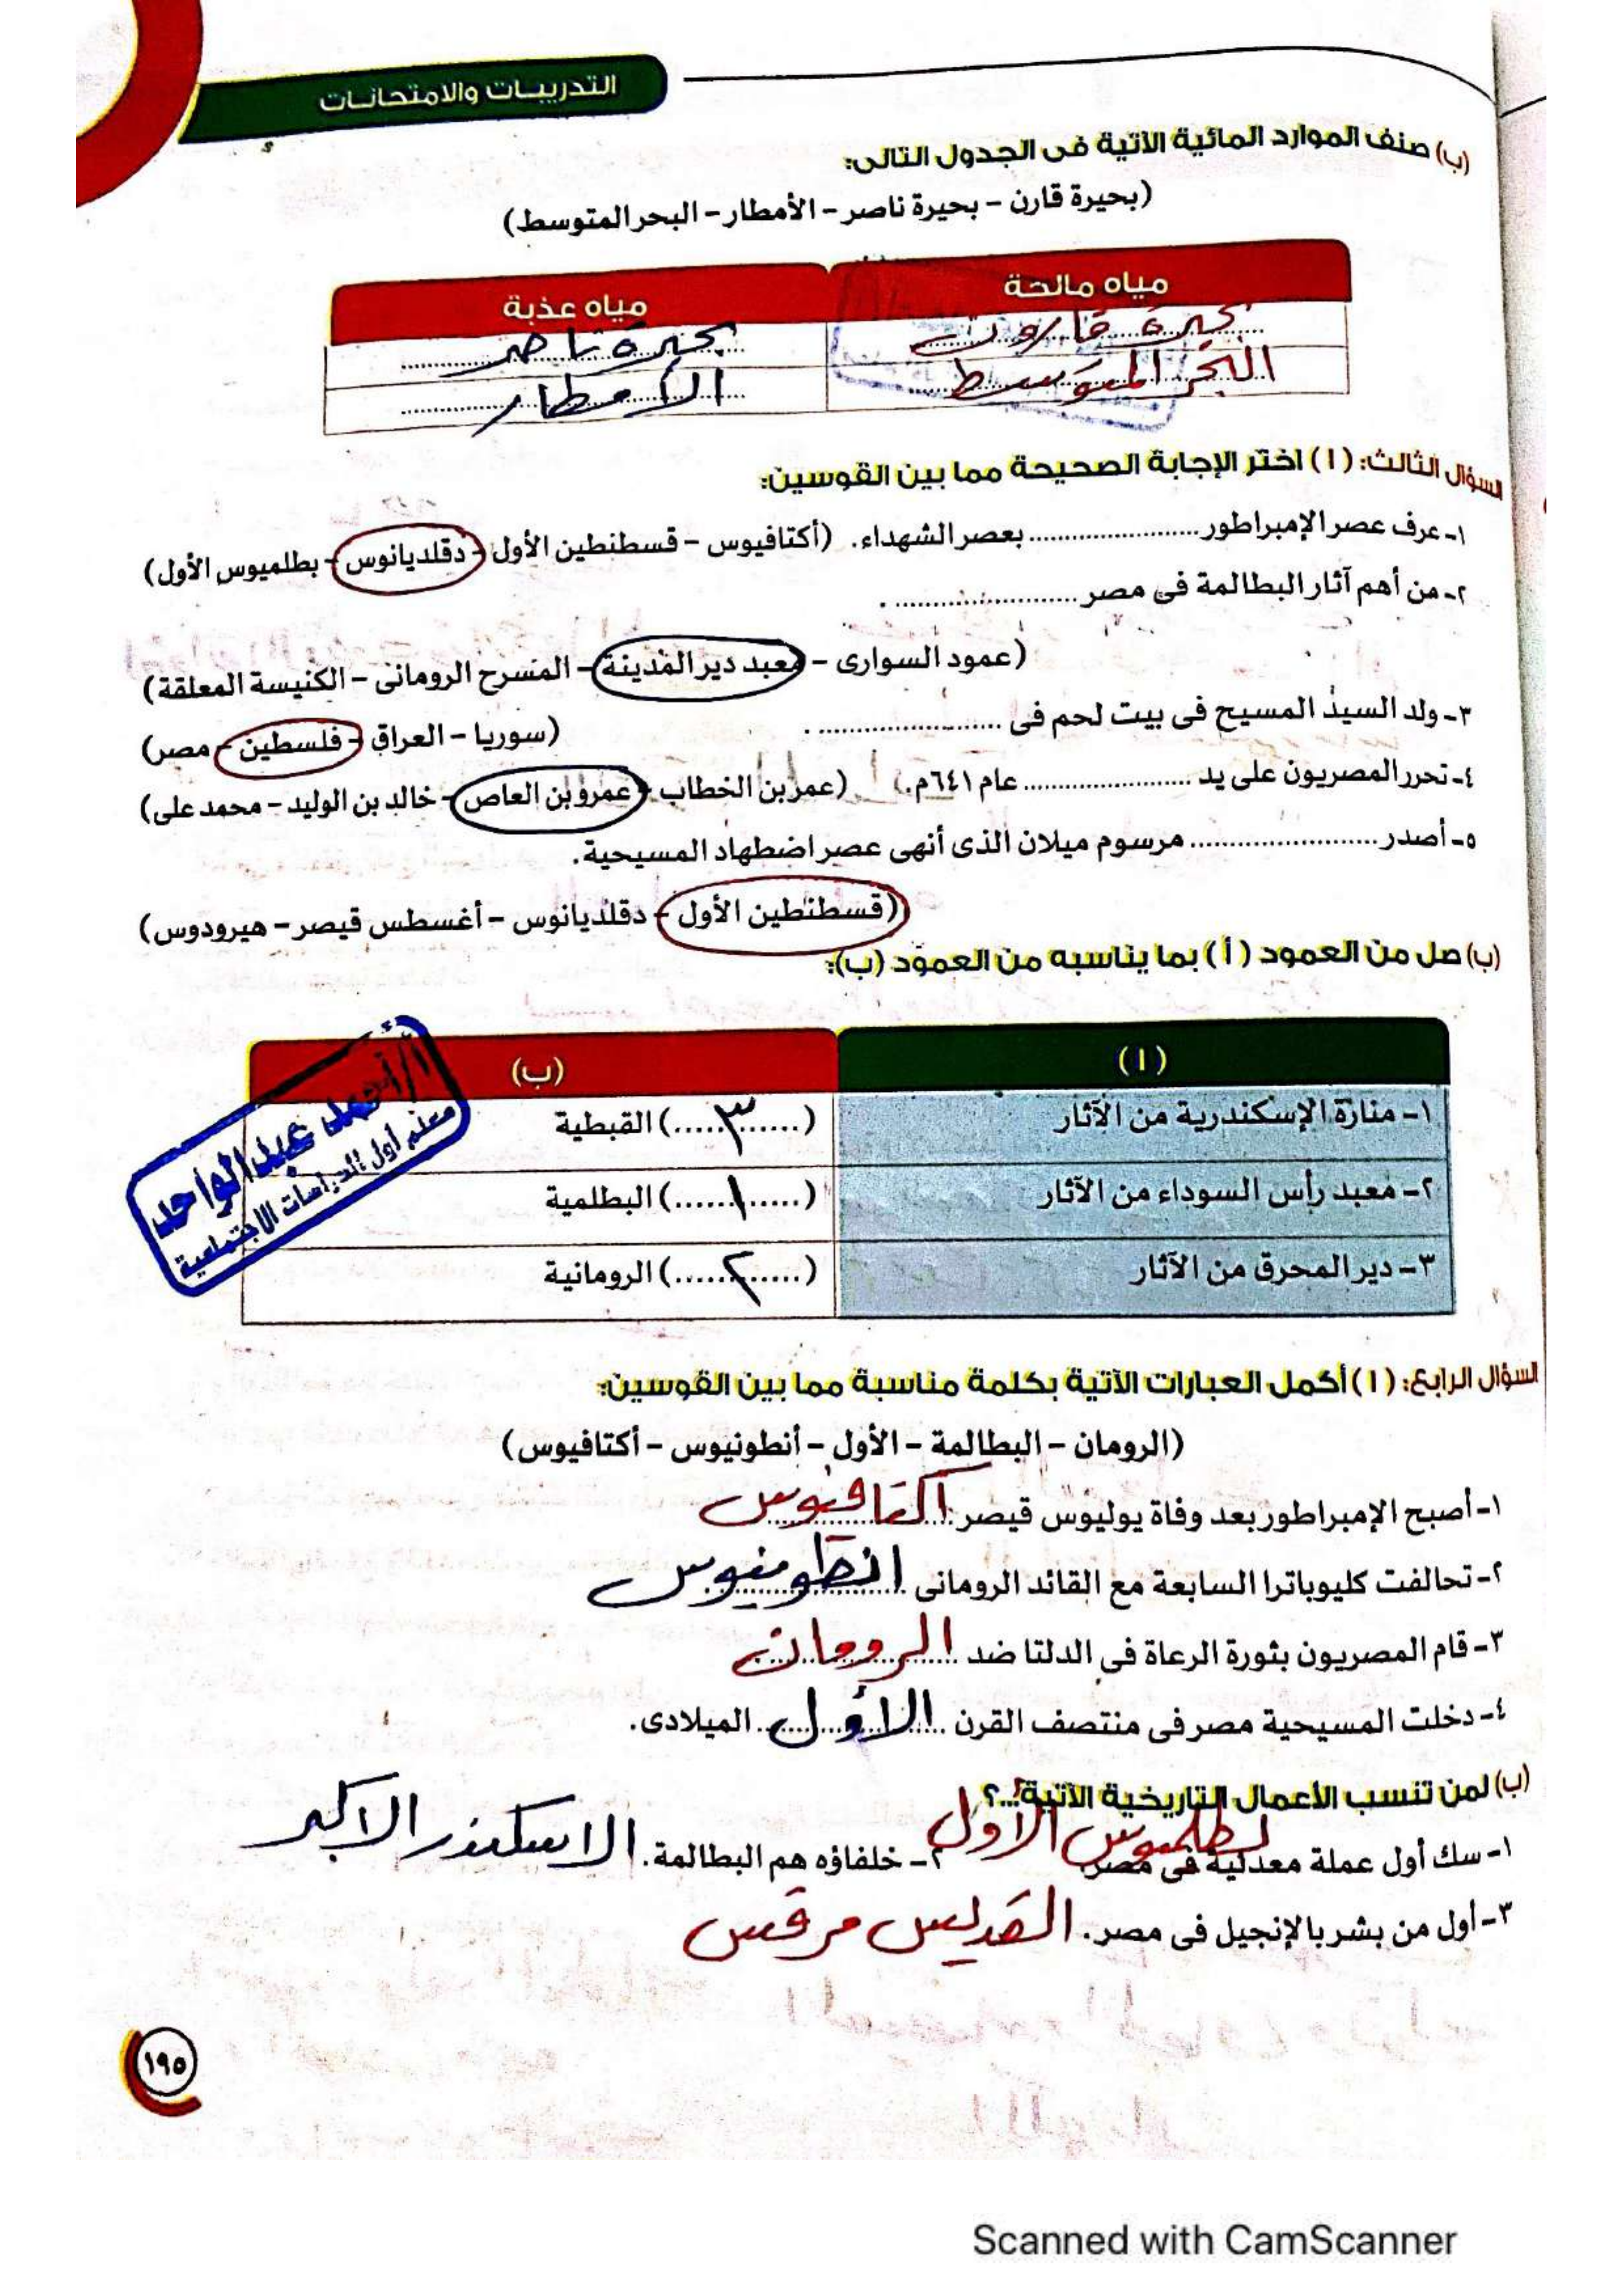 التدريبات والامتحانات
(ب) صنف الموارد المائية الآتية فى الجدول التالى:
(بحيرة قارن - بحيرة ناصر - الأمطار - البحر المتوسط)
مياه مالحة مياه عذبة
بحيرة قارون بحيرة ناصر
البحر المتوسط الأمطار
السؤال الثالث: (أ) اختر الإجابة الصحيحة مما بين القوسين:
١- عرف عصر الإمبراطور .................... بعصر الشهداء. (أكتافيوس - قسطنطين الأول - دقلديانوس - بطلميوس الأول)
٢- من أهم آثار البطالمة فى مصر .................... .
(عمود السوارى - معبد دير المدينة - المسرح الرومانى - الكنيسة المعلقة)
٣- ولد السيد المسيح فى بيت لحم فى .................... . (سوريا - العراق - فلسطين - مصر)
٤- تحرر المصريون على يد .................... عام ٦٤١م. (عمر بن الخطاب - عمرو بن العاص - خالد بن الوليد - محمد على)
٥- أصدر .................... مرسوم ميلان الذى أنهى عصر اضطهاد المسيحية.
(قسطنطين الأول - دقلديانوس - أغسطس قيصر - هيرودوس)
(ب) صل من العمود (أ) بما يناسبه من العمود (ب):
(أ) (ب)
١- منارة الإسكندرية من الآثار (.....٣.....) القبطية
٢- معبد رأس السوداء من الآثار (.....١.....) البطلمية
٣- دير المحرق من الآثار (.....٢.....) الرومانية
أ/ أحمد عبد الواحد
معلم أول الدراسات الاجتماعية
السؤال الرابع: (أ) أكمل العبارات الآتية بكلمة مناسبة مما بين القوسين:
(الرومان - البطالمة - الأول - أنطونيوس - أكتافيوس)
١- أصبح الإمبراطور بعد وفاة يوليوس قيصر أكتافيوس
٢- تحالفت كليوباترا السابعة مع القائد الرومانى انطونيوس
٣- قام المصريون بثورة الرعاة فى الدلتا ضد الرومان
٤- دخلت المسيحية مصر فى منتصف القرن الأول الميلادى.
(ب) لمن تنسب الأعمال التاريخية الآتية...؟
١- سك أول عملة معدنية فى مصر. بطلميوس الأول ٢- خلفاؤه هم البطالمة. الاسكندر الاكبر
٣- أول من بشر بالإنجيل فى مصر. القديس مرقس
١٩٥
Scanned with CamScanner